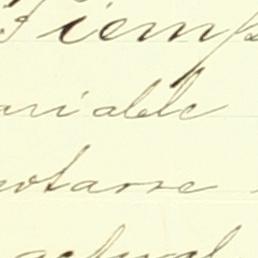 Tiemp
ariable
otarse
actual